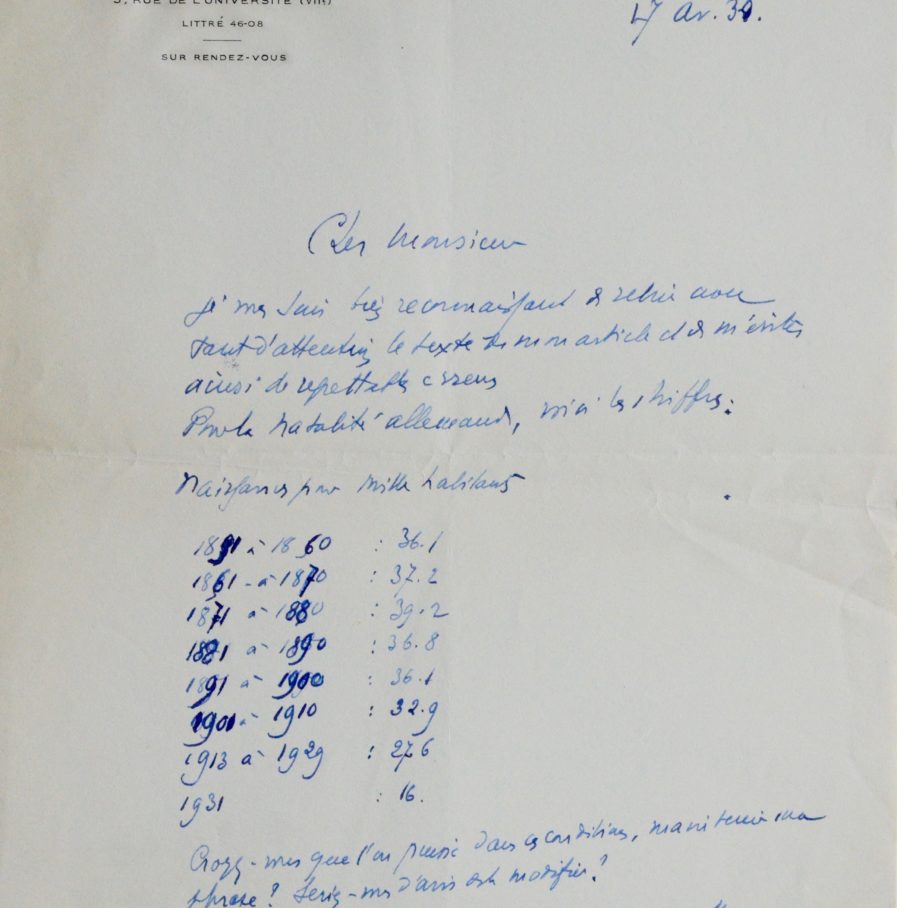 5, RUE DE L'UNIVERSITÉ (VIIe)
LITTRÉ 46-08
SUR RENDEZ-VOUS
Av. 39.
Cher Monsieur
Je vous suis très reconnaissant de relire avec
tant d'attention le texte de mon article et de m'éviter
ainsi de regrettables erreurs
Pour la natalité allemande, voici les chiffres :
Naissances pour mille habitants
à 1860 : 36.1
1861 - à 1870 : 37.2
1871 à 1880 : 39.2
1881 à 1890 : 36.8
1891 à 1900 : 36.1
1901 à 1910 : 32.9
1913 à 1929 : 27.6
1931 : 16.
Croyez-vous que l'on puisse dans ces conditions, maintenir ma
phrase ? Seriez-vous d'avis de la modifier ?